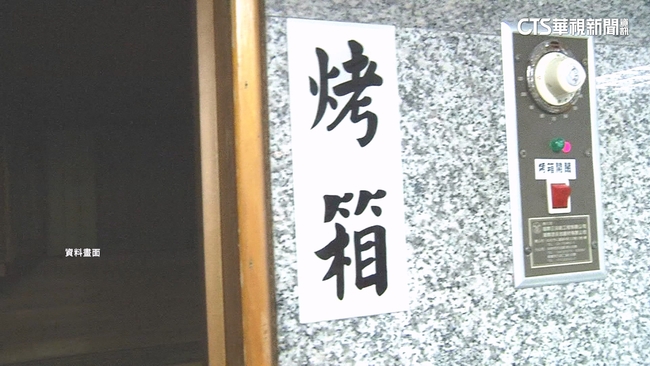 CTS華視新聞資訊
烤
箱
烤箱開關
資料畫面